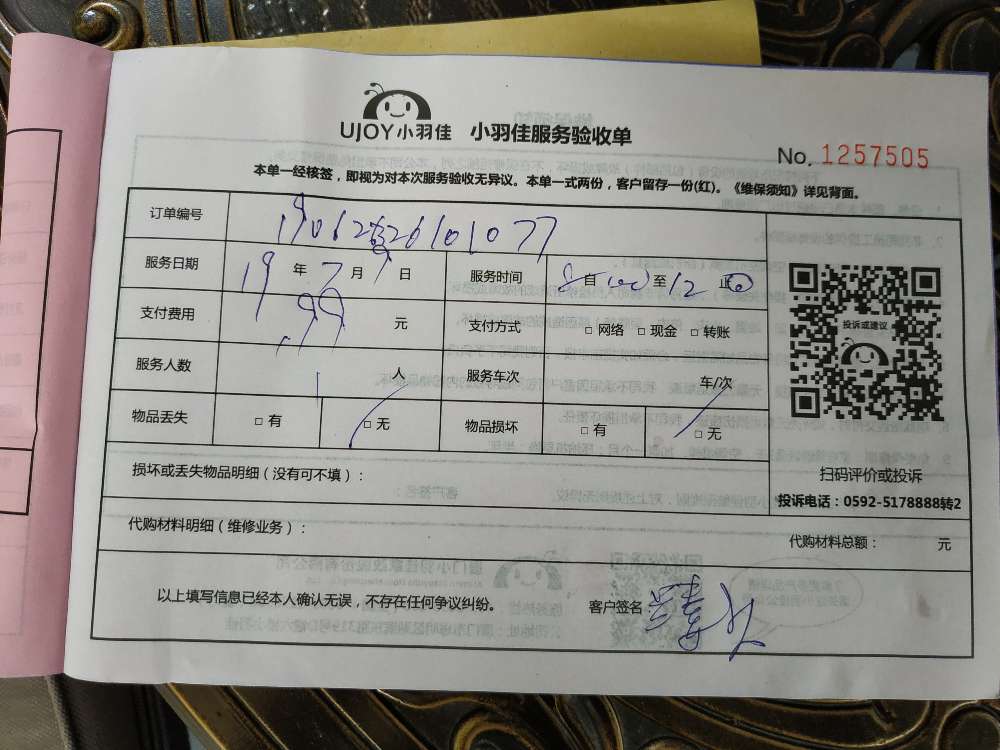 UJOY小羽佳 小羽佳服务验收单
No. 1257505
本单一经核签，即视为对本次服务验收无异议。本单一式两份，客户留存一份(红)。《维保须知》详见背面。
订单编号
服务日期 19 年 7 月 9 日 服务时间 8 自 100 至 12 止
支付费用 99 元 支付方式 □ 网络 □ 现金 □ 转账
服务人数 1 人 服务车次 车/次
物品丢失 □ 有 □ 无 物品损坏 □ 有 □ 无
投诉或建议
扫码评价或投诉
投诉电话：0592-5178888转2
损坏或丢失物品明细（没有可不填）：
代购材料明细（维修业务）：
代购材料总额： 元
以上填写信息已经本人确认无误，不存在任何争议纠纷。 客户签名